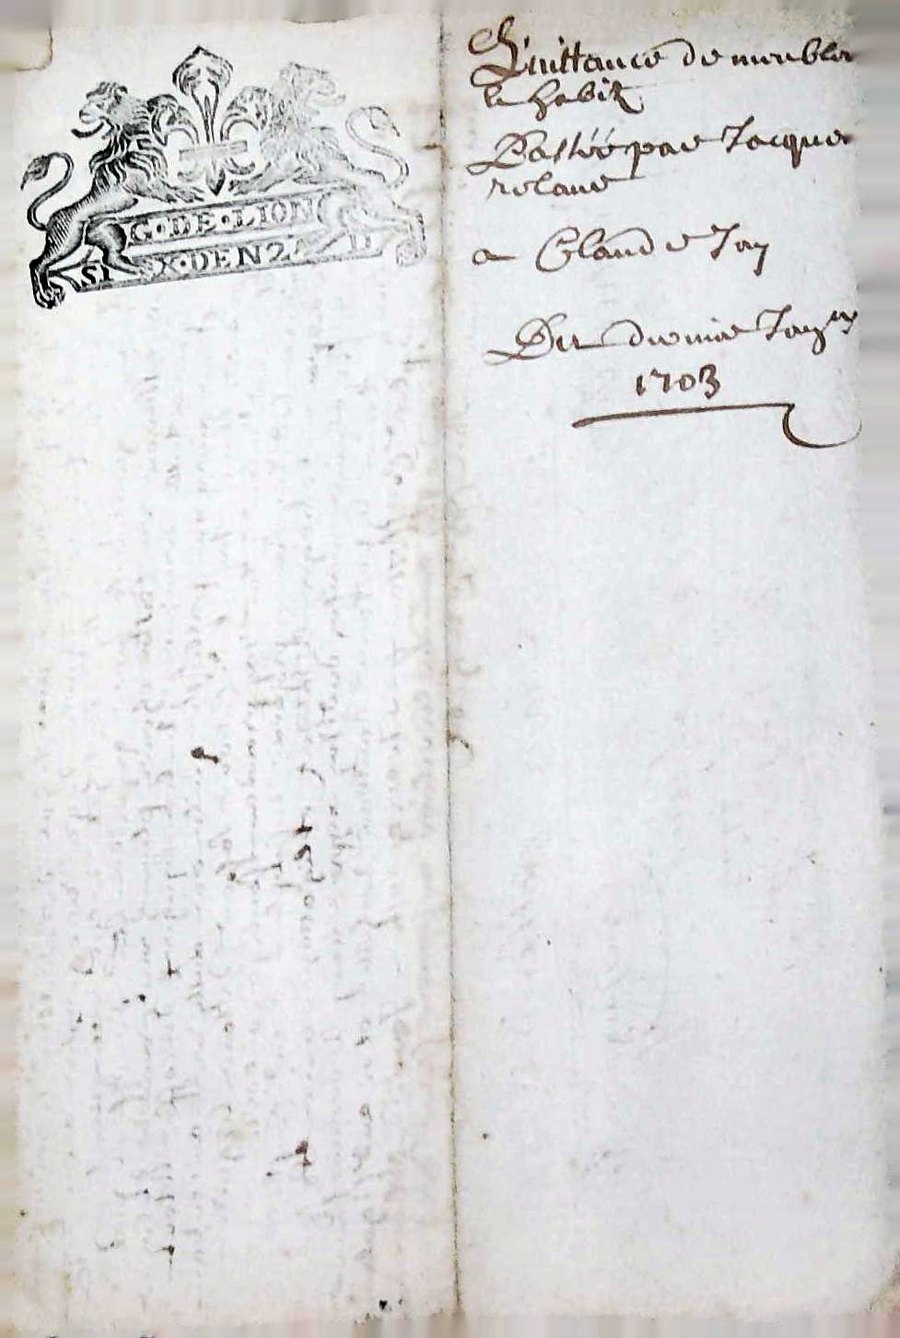 G·DE·LION
SIX·DEN 2
Quittance de meubles
et habitz
Passée par Jacque
relave
a Claude Jay
Du dernie Janer
1703